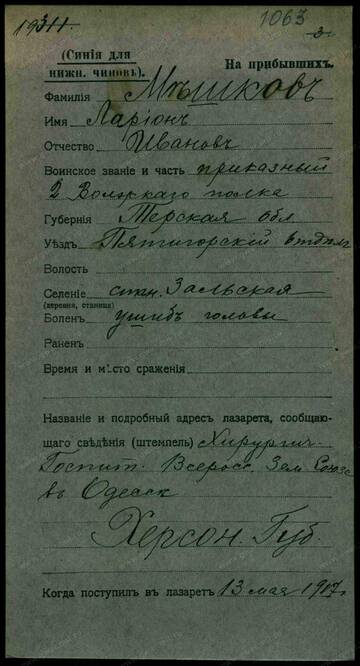 1063
(Синія для нижн. чиновъ). На прибывшихъ.
Фамилія Мѣшковъ
Имя Ларіонъ
Отчество Ивановъ
Воинское званіе и часть приказный
2 Волжскаго полка
Губернія Терская обл
Уѣздъ Пятигорскій отдѣлъ
Волость
Селеніе стан. Зальская
(деревня, станица)
Боленъ ушибъ головы
Раненъ
Время и мѣсто сраженія
Названіе и подробный адресъ лазарета, сообщаю-
щаго свѣдѣнія (штемпель) Хирургич.
Госпит. Всеросс. Зем. Союза
въ Одессѣ
Херсон. Губ.
Когда поступилъ въ лазаретъ 13 мая 1917